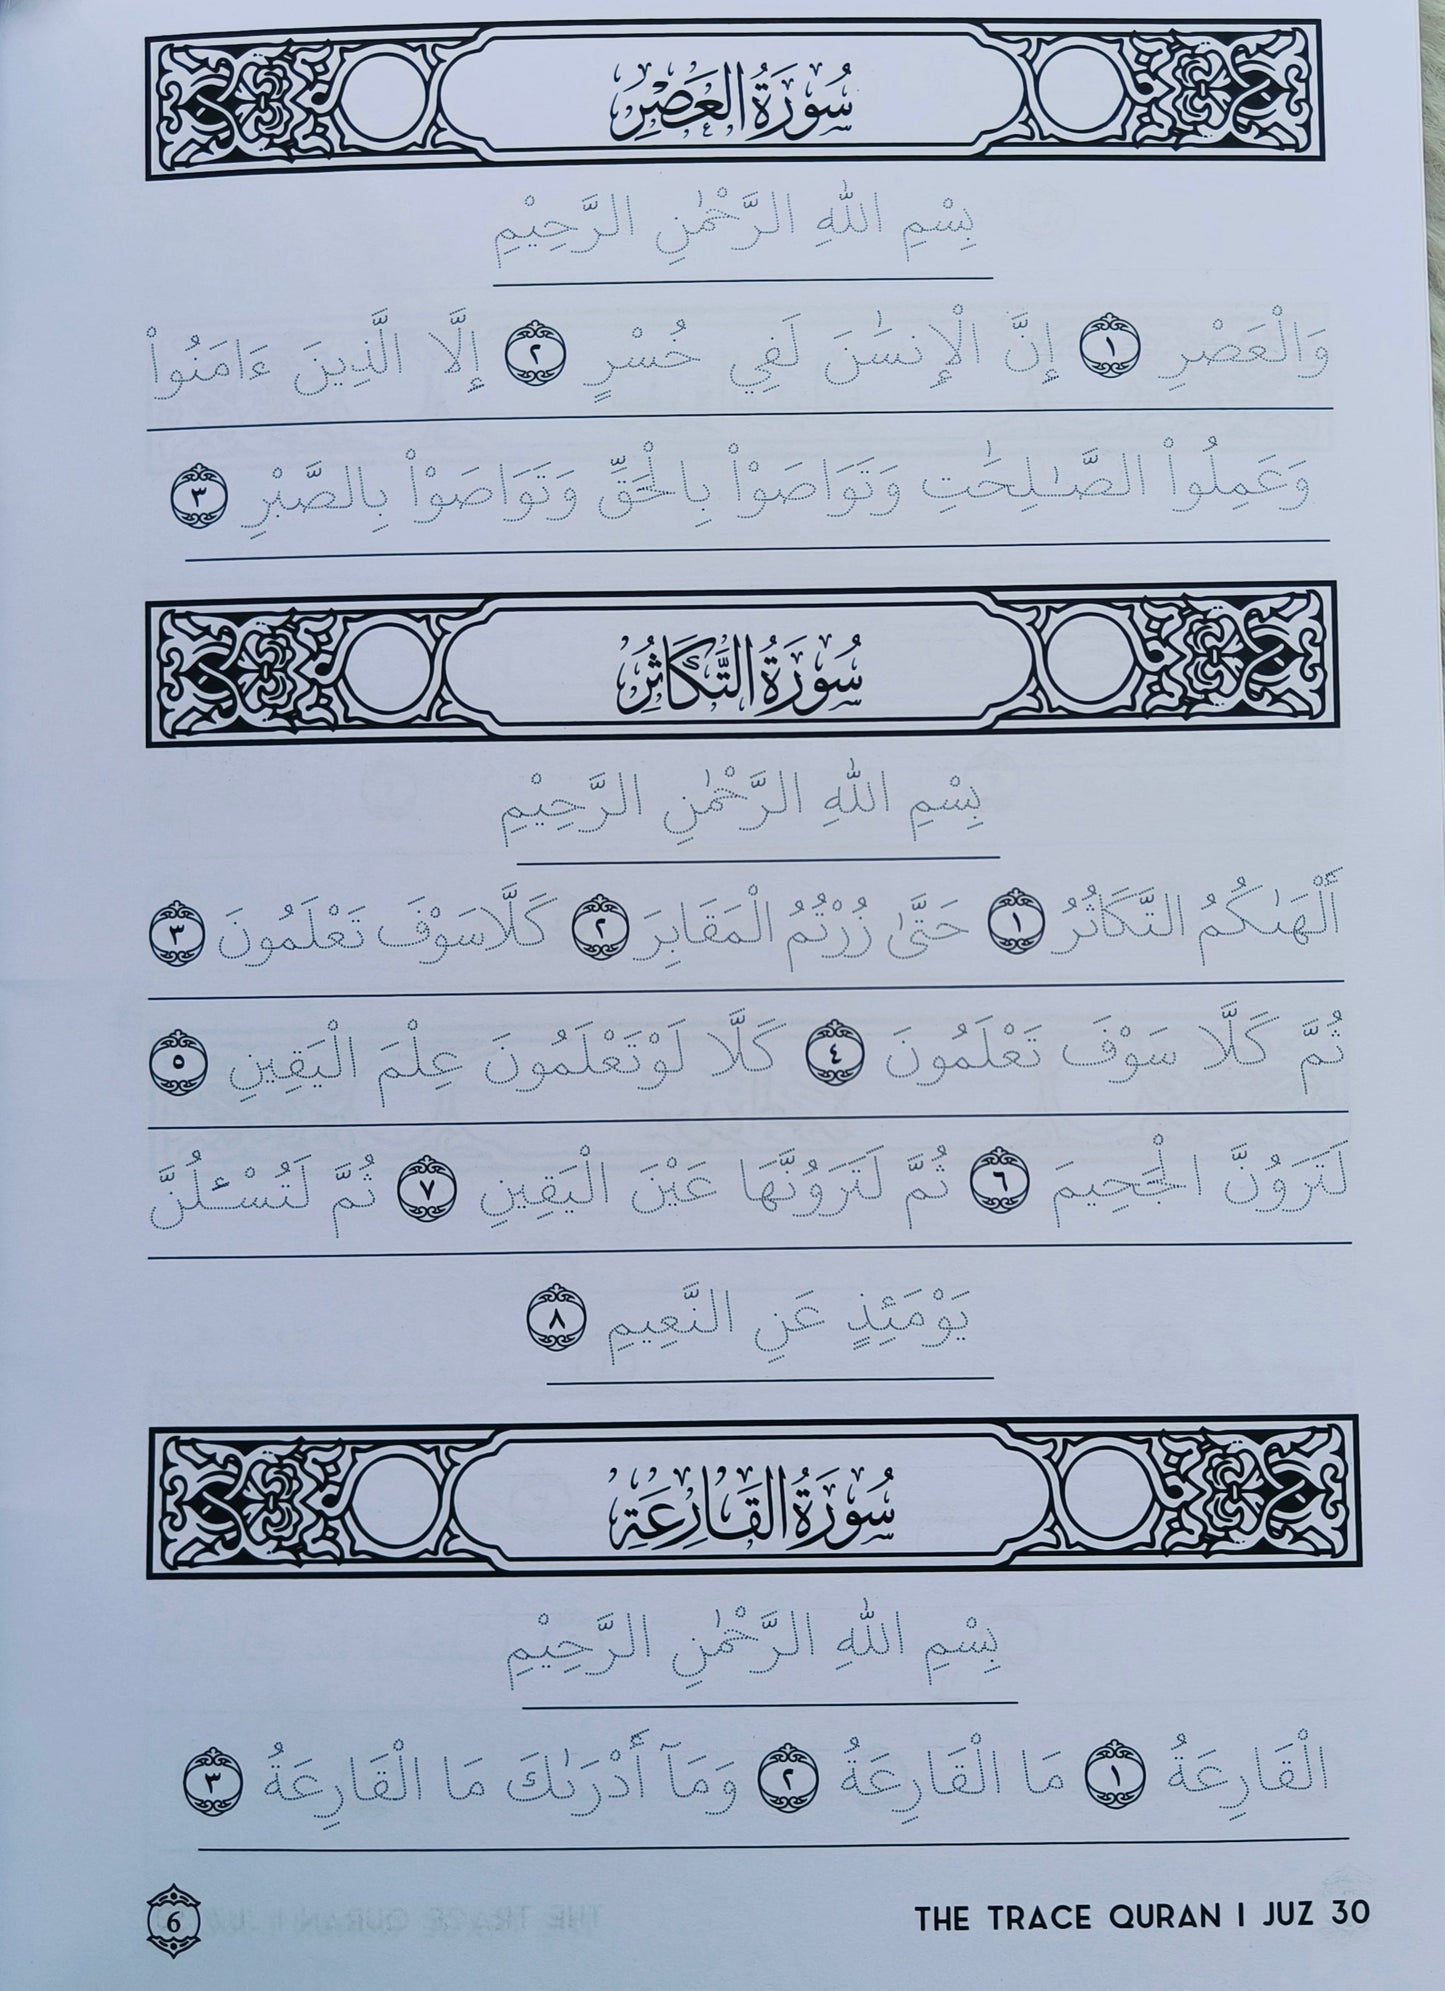 سُورَةُ الْعَصْرِ
بِسْمِ اللّٰهِ الرَّحْمٰنِ الرَّحِيْمِ
وَالْعَصْرِ ١ إِنَّ الْإِنسَٰنَ لَفِي خُسْرٍ ٢ إِلَّا الَّذِينَ ءَامَنُواْ
وَعَمِلُواْ الصَّٰلِحَٰتِ وَتَوَاصَوْاْ بِالْحَقِّ وَتَوَاصَوْاْ بِالصَّبْرِ ٣
سُورَةُ التَّكَاثُرِ
بِسْمِ اللّٰهِ الرَّحْمٰنِ الرَّحِيْمِ
أَلْهَىٰكُمُ التَّكَاثُرُ ١ حَتَّىٰ زُرْتُمُ الْمَقَابِرَ ٢ كَلَّا سَوْفَ تَعْلَمُونَ ٣
ثُمَّ كَلَّا سَوْفَ تَعْلَمُونَ ٤ كَلَّا لَوْ تَعْلَمُونَ عِلْمَ الْيَقِينِ ٥
لَتَرَوُنَّ الْجَحِيمَ ٦ ثُمَّ لَتَرَوُنَّهَا عَيْنَ الْيَقِينِ ٧ ثُمَّ لَتُسْـَٔلُنَّ
يَوْمَئِذٍ عَنِ النَّعِيمِ ٨
سُورَةُ الْقَارِعَةِ
بِسْمِ اللّٰهِ الرَّحْمٰنِ الرَّحِيْمِ
الْقَارِعَةُ ١ مَا الْقَارِعَةُ ٢ وَمَآ أَدْرَىٰكَ مَا الْقَارِعَةُ ٣
6
THE TRACE QURAN | JUZ 30